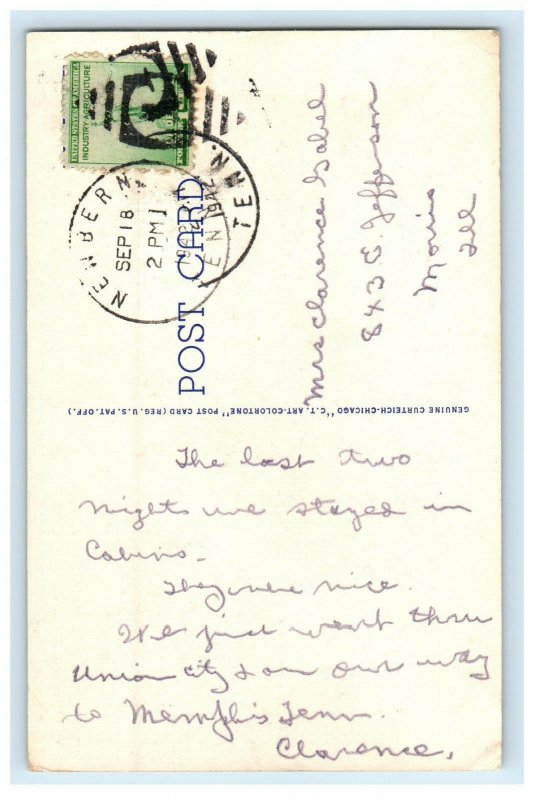 UNITED STATES OF AMERICA
INDUSTRY AGRICULTURE
NEWBERN
TENN.
SEP 18
2 PM
1942
POST CARD
Mrs Clarence Gabel
843 E. Jefferson
Morris
Ill
GENUINE CURTEICH-CHICAGO "C.T. ART-COLORTONE" POST CARD (REG. U.S. PAT. OFF.)
The last two
nights we stayed in
Cabins.
They were nice.
We just went thru
Union city & on our way
to Memphis Tenn.
Clarence.